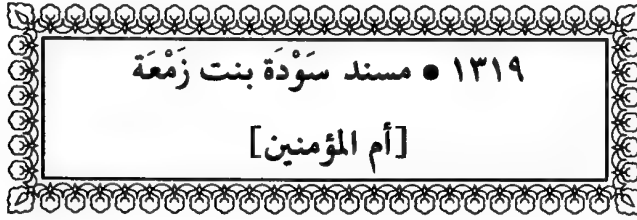 ١٣١٩ ● مسند سَوْدَة بنت زَمْعَة
[أم المؤمنين]